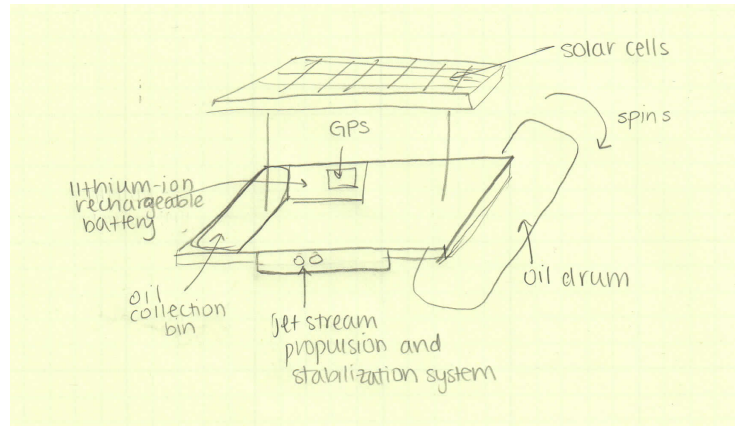 solar cells
spins
GPS
lithium-ion
rechargeable
battery
oil drum
oil
collection
bin
jet stream
propulsion and
stabilization system